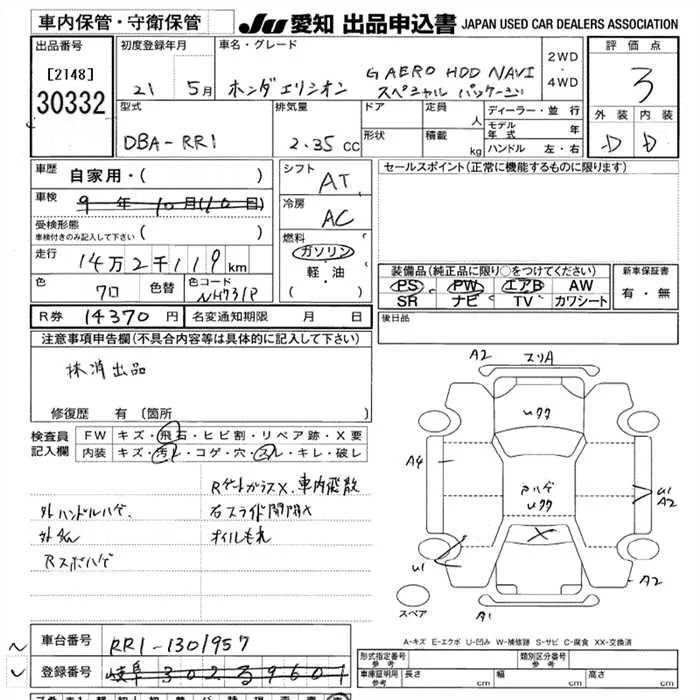 車内保管・守衛保管 JU 愛知 出品申込書 JAPAN USED CAR DEALERS ASSOCIATION
出品番号 初度登録年月 車名・グレード 2WD ・ 4WD 評価点
[2148] 30332 21 5月 ホンダエリシオン G AERO HDD NAVI スペシャルパッケージ 3
型式 排気量 ドア 定員 人 ディーラー・並行 外装 内装
DBA-RR1 2.35 cc 形状 積載 kg モデル年式 年 D D
ハンドル 左・右
車歴 自家用・( ) シフト AT セールスポイント(正常に機能するものに限ります)
車検 9年10月(10日) 冷房 AC
受検形態 車検付きのみ記入して下さい ( )
燃料 ガソリン・軽・油 ( )
走行 14万2千119km
装備品(純正品に限り○をつけてください) 新車保証書
PS PW エアB AW 有・無
SR ナビ TV カワシート
色 クロ 色替 色コード NH731P
R券 14370円 名変通知期限 月 日 後日品
注意事項申告欄(不具合内容等は具体的に記入して下さい)
抹消出品
修復歴 有(箇所 )
検査員記入欄 FW キズ・飛石・ヒビ割・リペア跡・X要
内装 キズ・汚レ・コゲ・穴・スレ・キレ・破レ
RゲートガラスX、車内飛散
外ハンドルハゲ、 右スライド開閉X
オイルもれ
Rスポハゲ
A2 スリA
Uクク
A4
Uクク
U1
A2
X
U1
A2
スペア
A1
A-キズ E-エクボ U-凹み W-補修跡 S-サビ C-腐食 XX-交換済
車台番号 RR1-1301957
登録番号 岐阜 302 る 9601
形式指定番号 参考 類別区分番号 参考
車庫証明用 参考 長さ cm 幅 cm 高さ cm